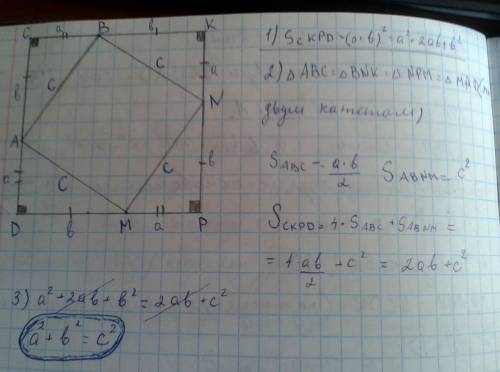 C a B b K
b c c a
A N
a c c b
D b M a P
1) SCKPD = (a+b)² = a²+2ab+b²
2) △ABC = △BNK = △NPM = △MAD (по
двум катетам)
SABC = a·b/2 SABNM = c²
SCKPD = 4·SABC + SABNM =
= 4 ab/2 + c² = 2ab + c²
3) a² + 2ab + b² = 2ab + c²
a² + b² = c²